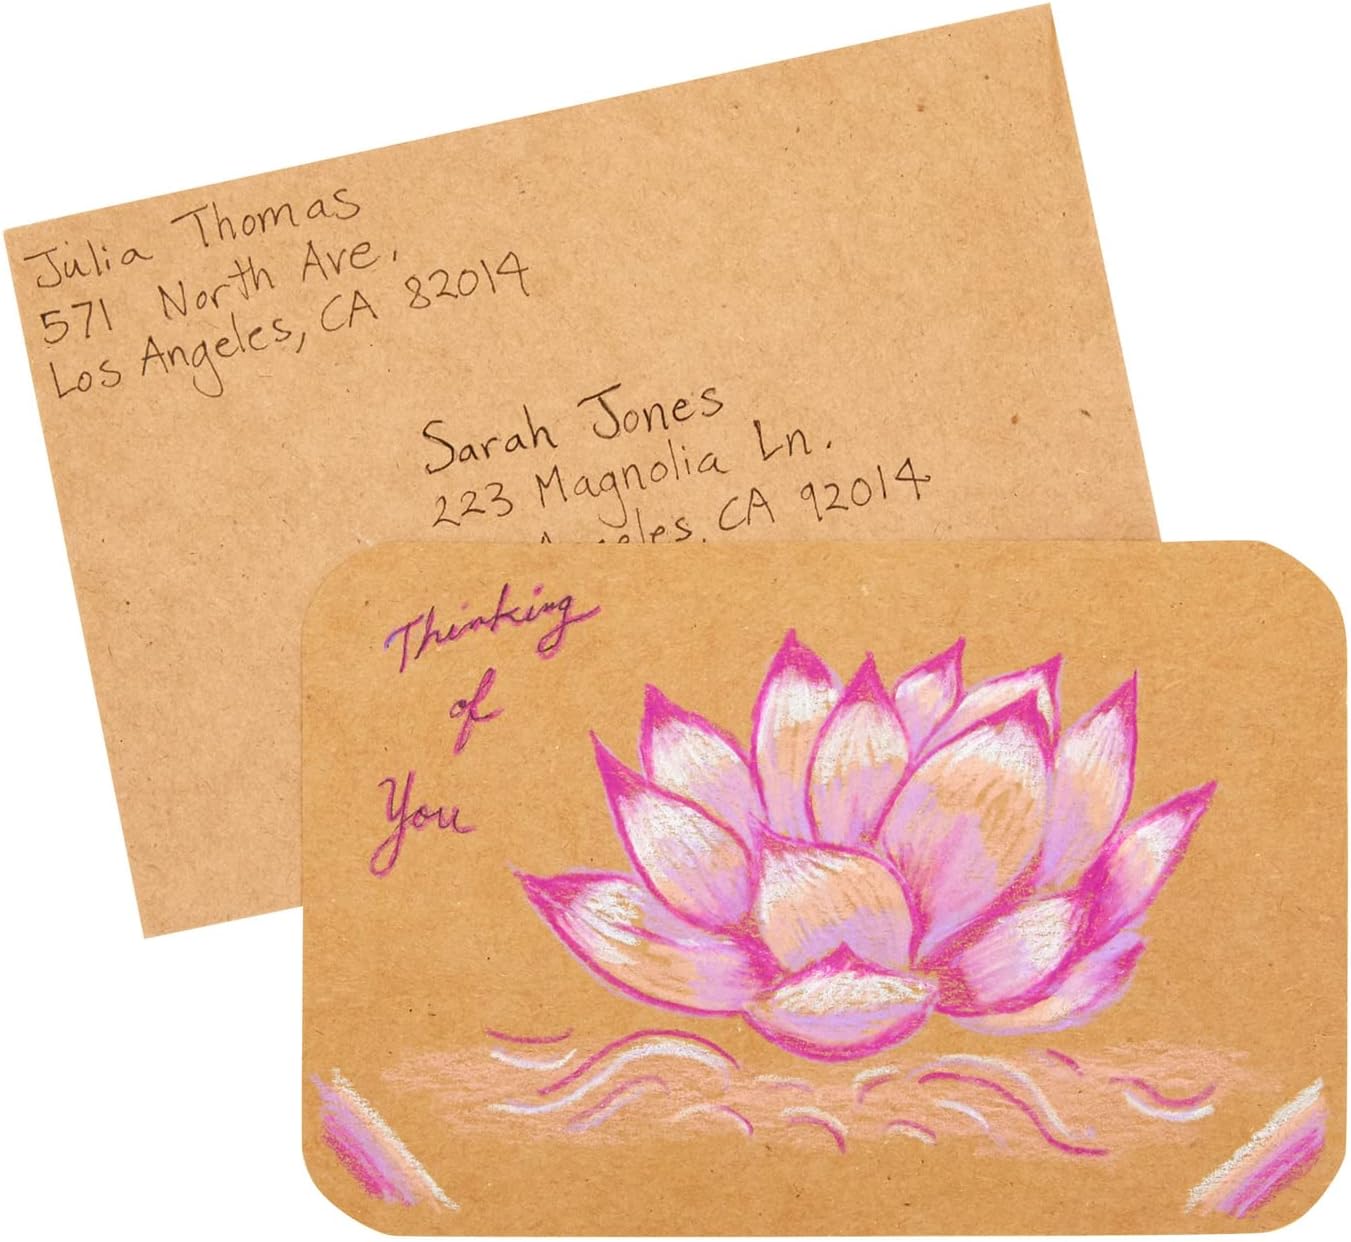 Julia Thomas
571 North Ave.
Los Angeles, CA 82014
Sarah Jones
223 Magnolia Ln.
CA 92014
Thinking
of
You